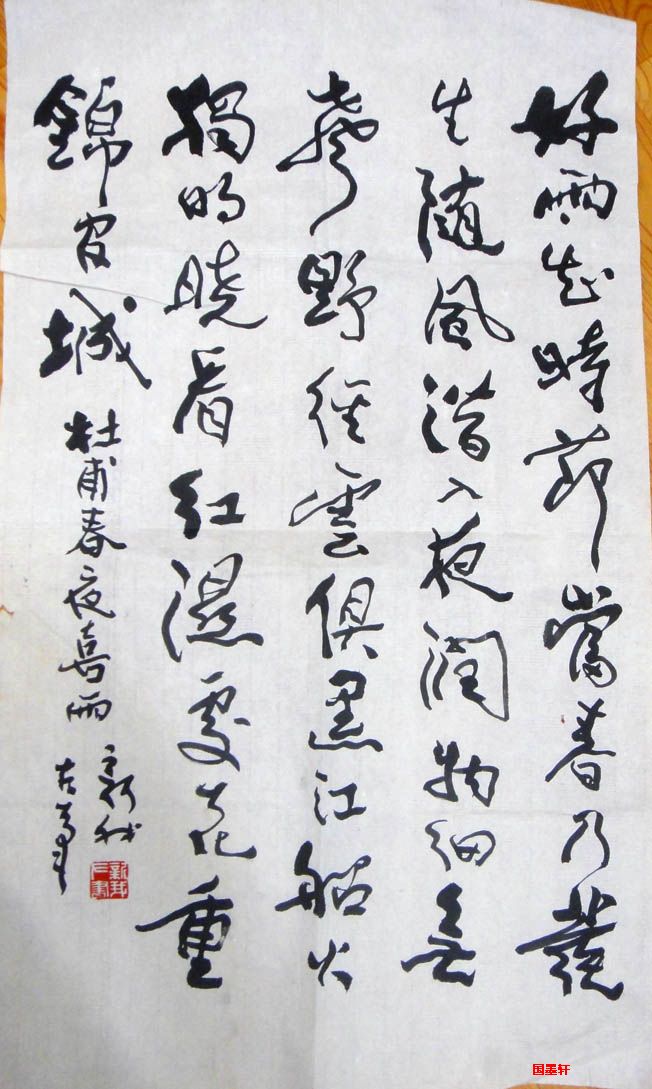 好雨知時節當春乃發
生随風潛入夜潤物細無
聲野徑雲俱黑江船火
獨明曉看紅濕處花重
錦官城
杜甫春夜喜雨
新我
左筆
国墨轩